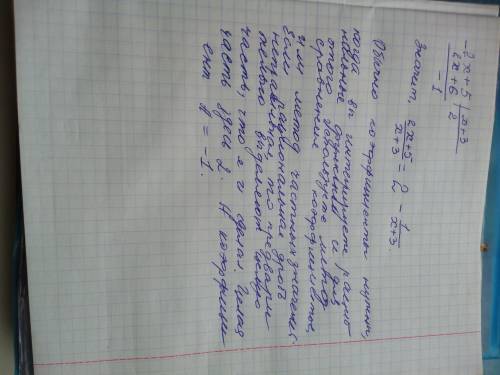 2x + 5 | x + 3
2x + 6   2
-1
Значит, 2x+5/x+3 = 2 - 1/x+3.
Обычно коэффициенты нужны,
когда вы интегрируете рацио
нальные функции и для
этого используете метод
сравнения коэффициентов,
или метод частных значений.
Если рациональная дробь
неправильная, то предвари
тельно выделяют целую
часть, что я и сделал. Целая
часть здесь 2. А коэффици
ент A = -1.